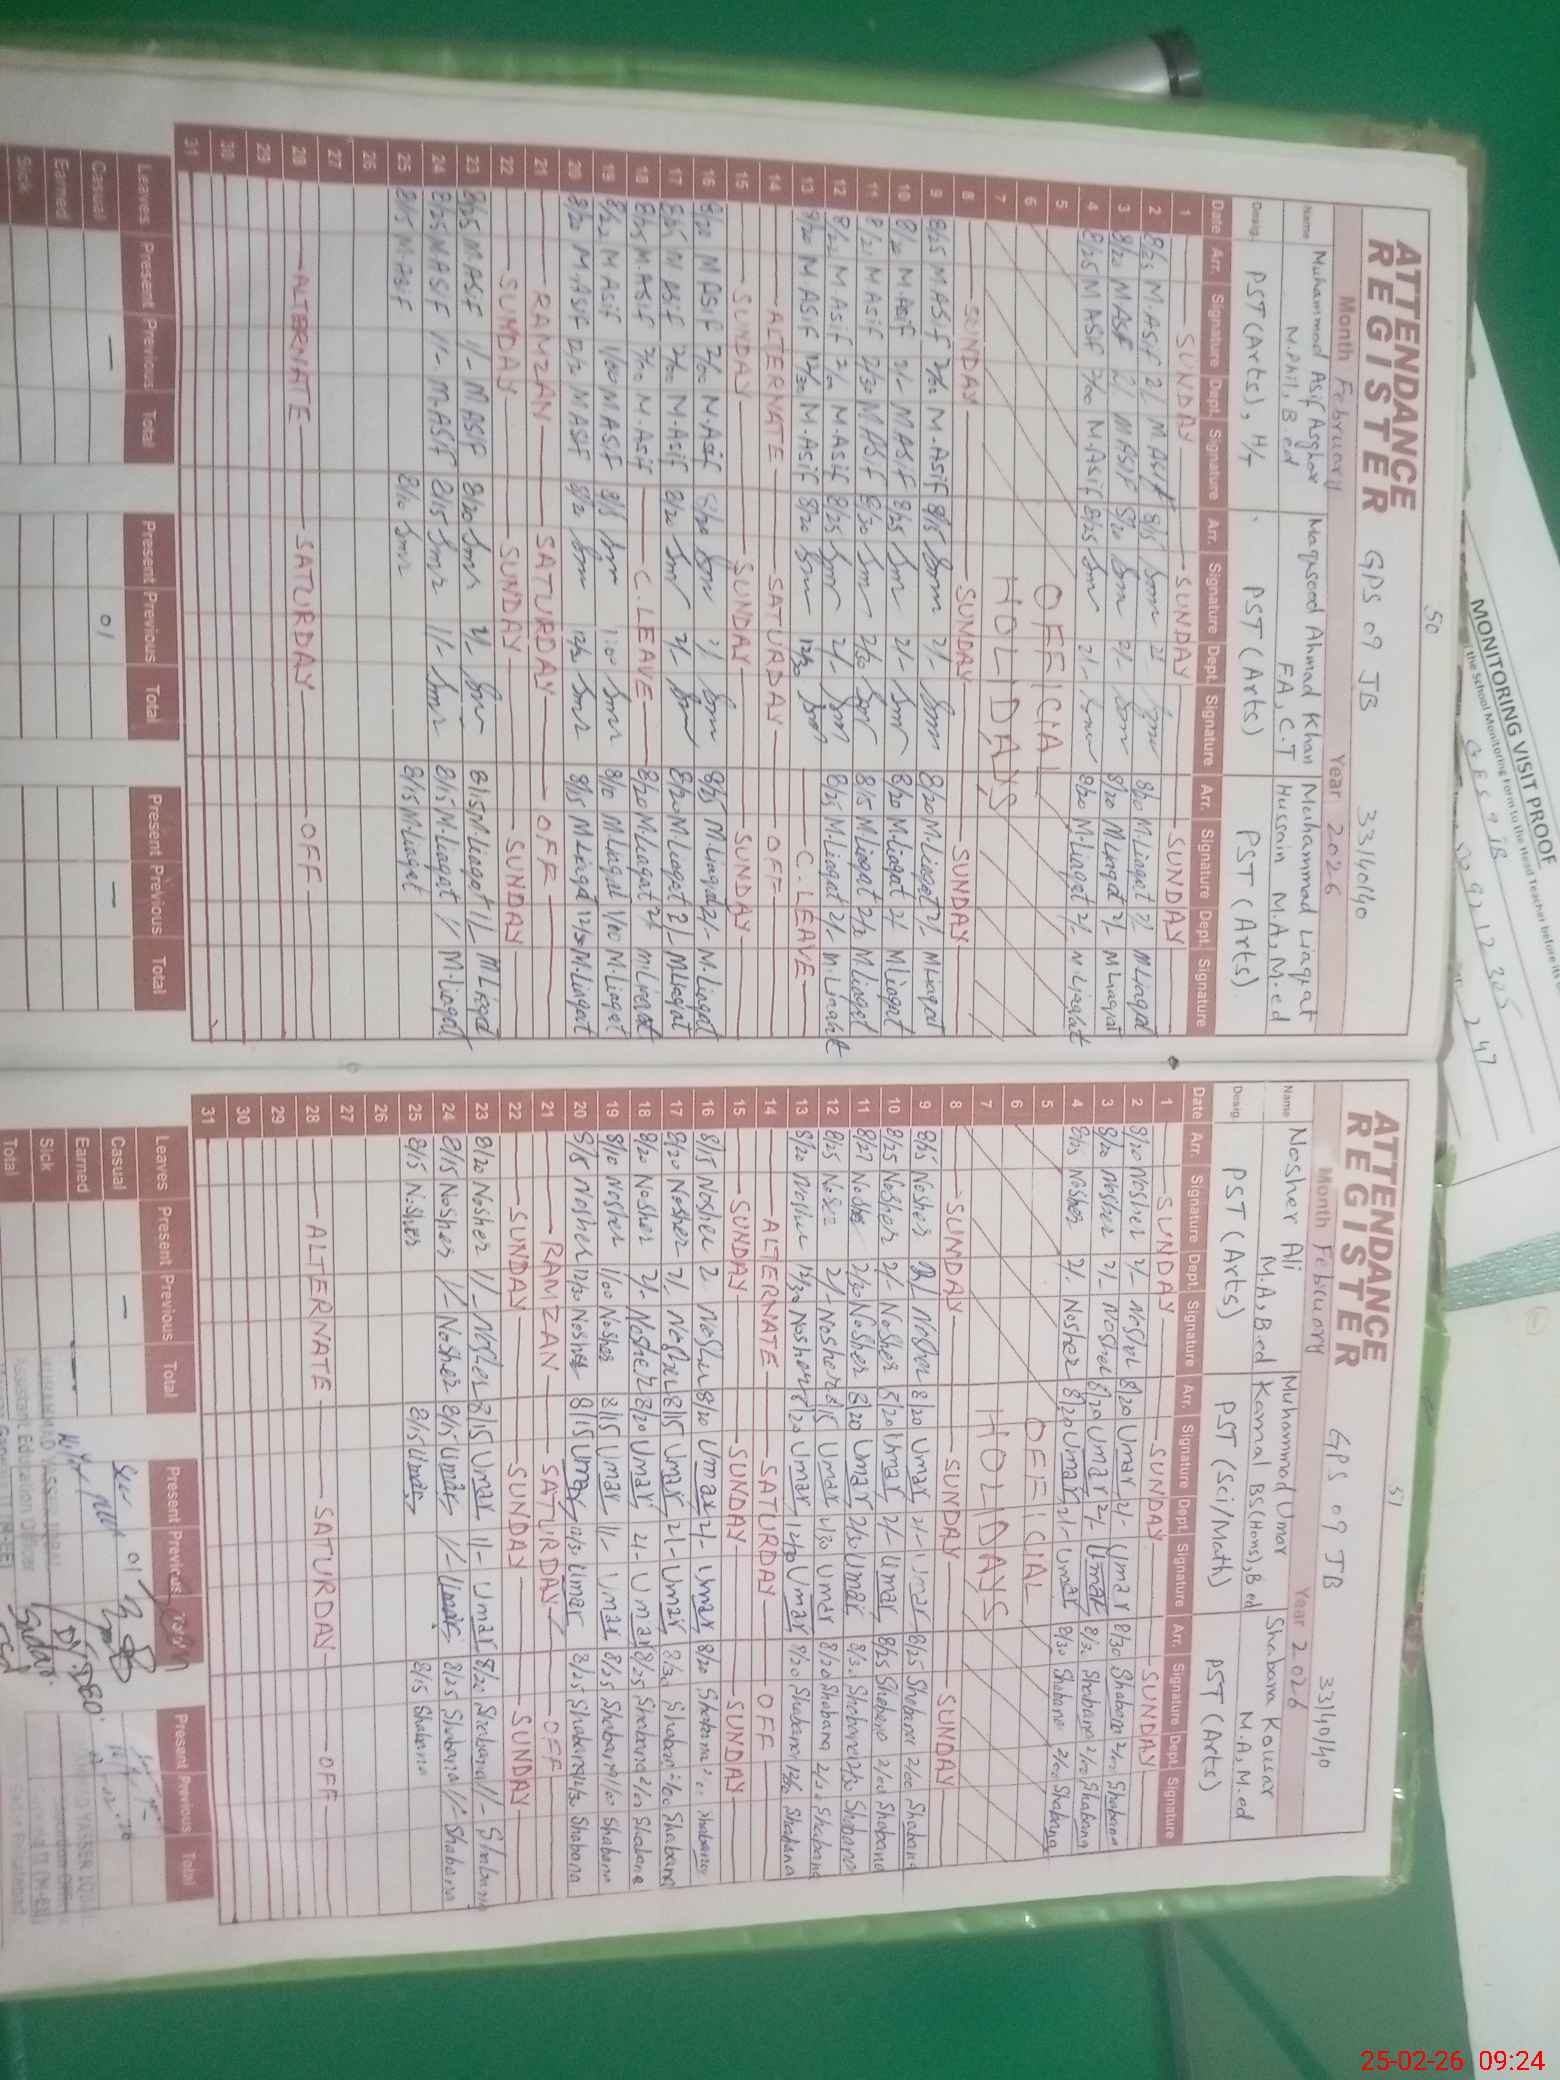 50
ATTENDANCE REGISTER GPS 09 JB 33140140
Month February Year 2026
Name Muhammad Asif Asghar M.Phil, B ed Maqsood Ahmad Khan FA, C.T Muhammad Liaqat Hussain M.A, M.ed
Desig. PST (Arts), H/T PST (Arts) PST (Arts).
Date Arr. Signature Dept. Signature Arr. Signature Dept. Signature Arr. Signature Dept. Signature
1 SUNDAY SUNDAY SUNDAY
2 8/25 M.Asif 2/ M.Asif 8/15 2/- 8/20 M.Liaqat 2/ M Liaqat
3 8/20 M Asif 2/ M Asif 8/20 2/- 8/20 M Liaqat 2/ M Liaqat
4 8/25 M Asif 2/00 M.Asif 8/25 2/- 8/20 M.Liaqat 2/- M.Liaqat
5
6 OFFICIAL
7 HOLIDAYS
8 SUNDAY SUNDAY SUNDAY
9 8/25 M Asif 2/00 M.Asif 8/15 2/- 8/20 M.Liaqat 2/- M Liaqat
10 8/20 M Asif 2/- M Asif 8/25 2/- 8/20 M.Liaqat 2/ M Liaqat
11 M Asif 2/30 M Asif 8/20 2/30 8/15 M.Liaqat 2/30 M Liaqat
12 8/22 M Asif 2/00 M.Asif 8/25 2/- 8/25 M.Liaqat 2/- M.Liaqat
13 8/20 M Asif 12/30 M.Asif 8/20 12/30 C.LEAVE
14 ALTERNATE SATURDAY OFF
15 SUNDAY SUNDAY SUNDAY
16 8/20 M Asif 2/00 M.Asif 8/20 2/ 8/25 M.Liaqat 2/- M.Liaqat
17 8/25 M Asif 2/00 M.Asif 8/20 2/- 8/20 M.Liaqat 2/- M.Liaqat
18 8/25 M.Asif 2/00 M.Asif C.LEAVE 8/20 M.Liaqat 2/ M.Liaqat
19 8/22 M Asif 1/00 M Asif 8/15 1:00 8/10 M.Liaqat 1/00 M.Liaqat
20 8/20 M.Asif 12/2 M Asif 8/21 12/2 8/15 M Liaqat 12/30 M.Liaqat
21 RAMZAN SATURDAY OFF
22 SUNDAY SUNDAY SUNDAY
23 8/25 M.Asif 1/- M Asif 8/20 1/- 8/15 M.Liaqat 1/- M Liaqat
24 8/25 M Asif 1/- M.Asif 8/15 1/- 8/15 M.Liaqat 1/ M.Liaqat
25 8/15 M.Asif 8/10 8/15 M.Liaqat
26
27
28 ALTERNATE SATURDAY OFF
29
30
31
Leaves Present Previous Total Present Previous Total Present Previous Total
Casual — 01 —
Earned
Sick
51
ATTENDANCE REGISTER GPS 09 JB 33140140
Month February Year 2026
Name Nosher Ali M.A, B.ed Muhammad Umar Kamal BS(Hons), B.ed Shabana Kousar M.A, M.ed
Desig. PST (Arts) PST (Sci/Math) PST (Arts)
Date Arr. Signature Dept. Signature Arr. Signature Dept. Signature Arr. Signature Dept. Signature
1 SUNDAY SUNDAY SUNDAY
2 8/20 Nosher 2/- Nosher 8/20 Umar 2/- Umar 8/30 Shabana 2/00 Shabana
3 8/20 Nosher 2/- Nosher 8/20 Umar 2/- Umar 8/30 Shabana 2/00 Shabana
4 8/25 Nosher 2/- Nosher 8/20 Umar 2/- Umar 8/30 Shabana 2/00 Shabana
5
6 OFFICIAL
7 HOLIDAYS
8 SUNDAY SUNDAY SUNDAY
9 8/25 Nosher 2/ Nosher 8/20 Umar 2/- Umar 8/25 Shabana 2/00 Shabana
10 8/25 Nosher 2/- Nosher 8/20 Umar 2/- Umar 8/25 Shabana 2/00 Shabana
11 8/27 Nosher 2/30 Nosher 8/20 Umar 2/30 Umar 8/30 Shabana 2/30 Shabana
12 8/25 Nosher 2/- Nosher 8/15 Umar 2/30 Umar 8/20 Shabana Shabana
13 8/20 Nosher 12/30 Nosher 8/20 Umar 12/30 Umar 8/20 Shabana 12/30 Shabana
14 ALTERNATE SATURDAY OFF
15 SUNDAY SUNDAY SUNDAY
16 8/15 Nosher 2 Nosher 8/20 Umar 2/- Umar 8/20 Shabana Shabana
17 8/20 Nosher 2/ Nosher 8/15 Umar 2/- Umar 8/30 Shabana 2/00 Shabana
18 8/20 Nosher 2/- Nosher 8/20 Umar 2/- Umar 8/25 Shabana 2/00 Shabana
19 8/10 Nosher 1/00 Nosher 8/15 Umar 1/- Umar 8/25 Shabana 1/00 Shabana
20 8/15 Nosher 12/30 Nosher 8/15 Umar 12/30 Umar 8/25 Shabana 12/30 Shabana
21 RAMZAN SATURDAY OFF
22 SUNDAY SUNDAY SUNDAY
23 8/20 Nosher 1/- Nosher 8/15 Umar 1/- Umar 8/20 Shabana 1/- Shabana
24 8/15 Nosher 1/- Nosher 8/15 Umar 1/- Umar 8/25 Shabana 1/- Shabana
25 8/15 Nosher 8/15 Umar 8/15 Shabana
26
27
28 ALTERNATE SATURDAY OFF
29
30
31
Leaves Present Previous Total Present Previous Total Present Previous Total
Casual — 01
Earned
Sick
Total
Dy. DEO
MONITORING VISIT PROOF
the School Monitoring Form to the Head Teacher before
25-02-26 09:24